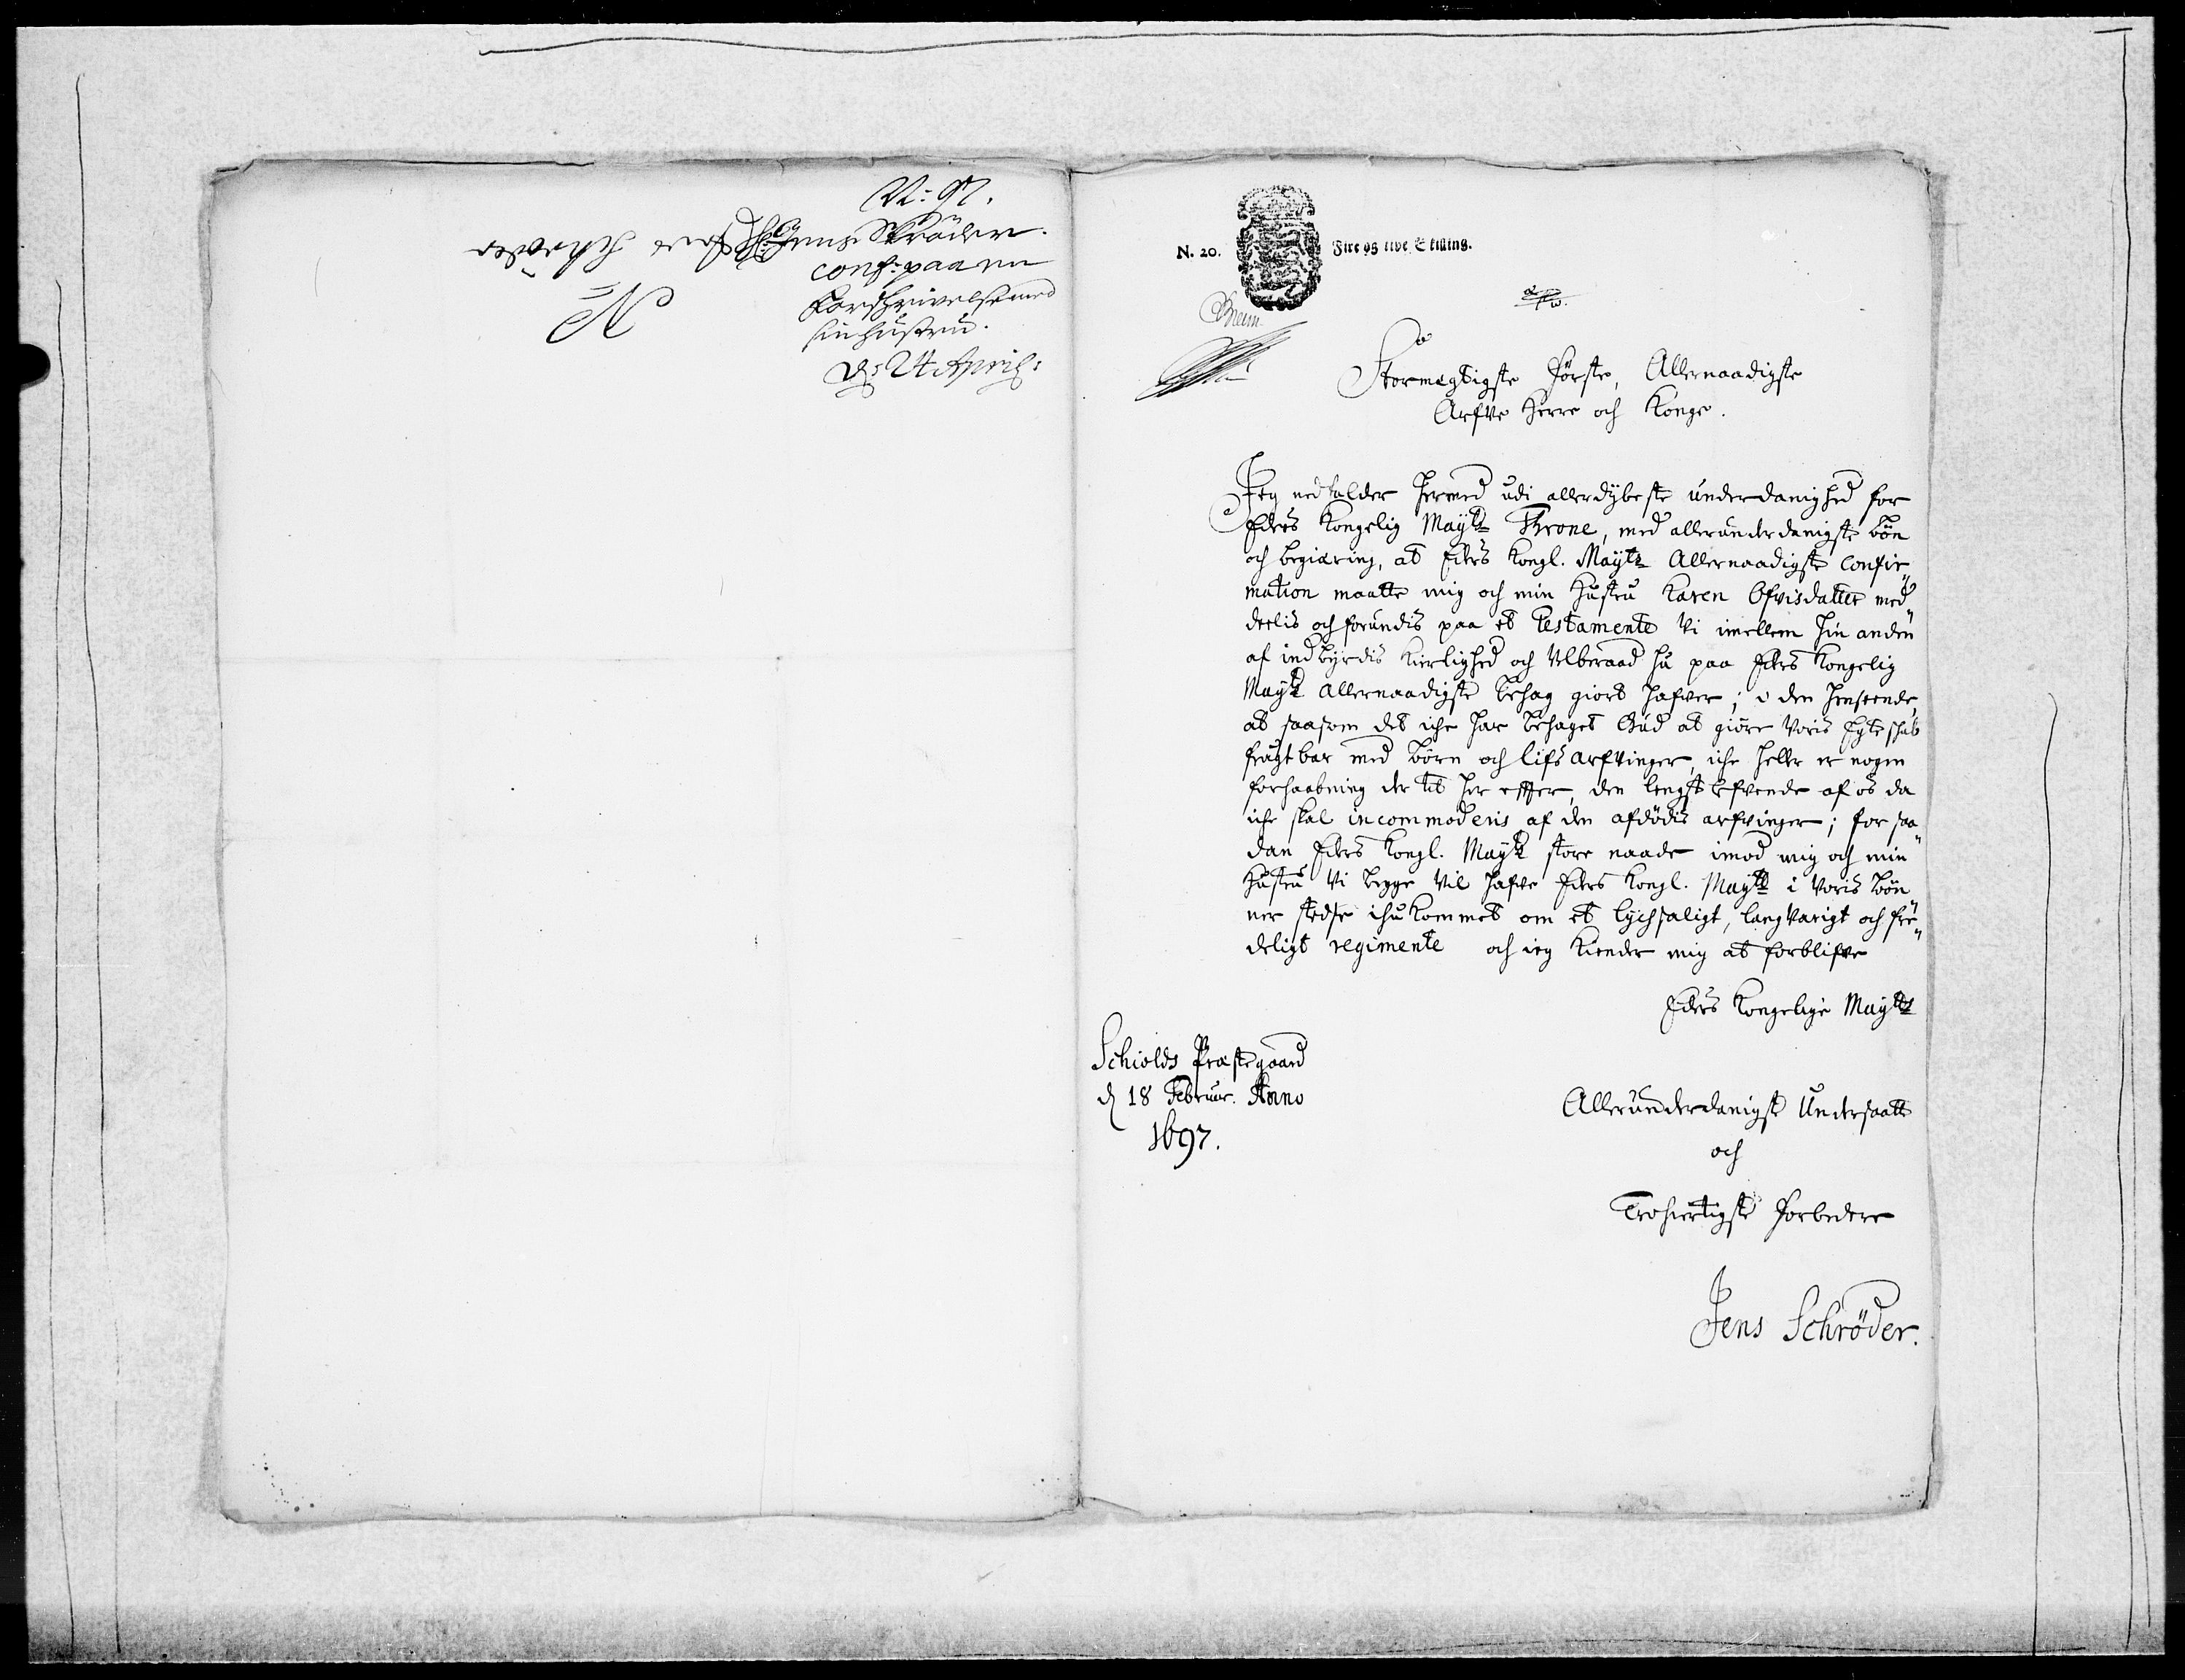 N: 97.
Hr: Jens Skröder.
conf: paa en
Forschrivelse med
sin hustru.
d: 24 April:
N. 20.
Fire og tive Skilling.
Stormegtigste Förste, Allernaadigste
Arfve Herre och Konge.
Jeg nedfalder hermed udi allerdybeste underdanighed for
Eders Kongelig Maytz Throne, med allerunderdanigste bön
och begiæring, at Eders Kongl. Maytz Allernaadigste Confir„
mation maatte mig och min Hustru Karen Ofvisdatter med„
deelis och forundis paa et Testamente Vi imellem hin anden
af indbyrdis Kierlighed och Velberaad hu paa Eders Kongelig
Maytz allernaadigste behag giort hafver; i den henseende,
at saasom det iche har behaget Gud at giöre Voris Egteschab
frugtbar med börn och lifs arfvinger, iche heller er nogen
forhaabning der til her effter, den lengst lefvende af os da
iche skal incommoderis af den afdödis arfvinger; for saa„
dan Eders Kongl. Maytz store naade imod mig och min
Hustru Vi begge Vil hafve Eders Kongl. Maytz i Voris Bön„
ner stedse ihukommet om et lychsaligt, langvarigt och fre„
deligt regimente och ieg Kiender mig at forblifve
Eders Kongelige Maytz
Schiolds Præstegaard
d 18 Februar. Anno
1697.
Allerunderdanigst Undersaatt
och
Trohiertigste forbedere
Jens Schröder.